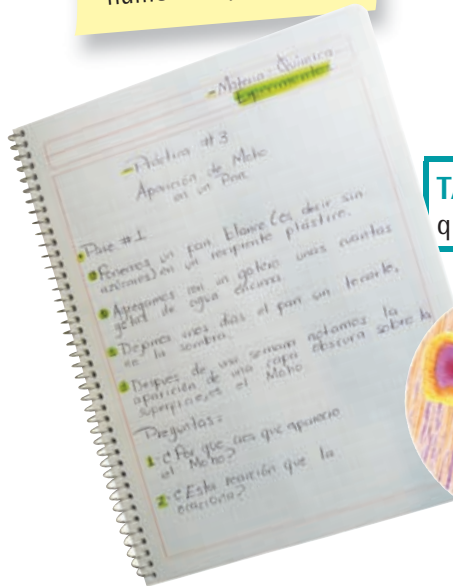 -Materia: Química
Experimentos
-Práctica #3
Aparición de Moho
en un Pan
Pase #1
Ponemos un pan blanco (es decir sin
azúcares) en un recipiente plástico.
Agregamos con un gotero unas cuantas
gotas de agua encima
Dejamos unos días el pan sin taparlo,
en la sombra.
Después de una semana notamos la
aparición de una capa obscura sobre la
superficie, es el Moho
Preguntas:
1- ¿Por qué crees que apareció
el Moho?
2- ¿Esta reacción que la
ocasiona?
TA
q